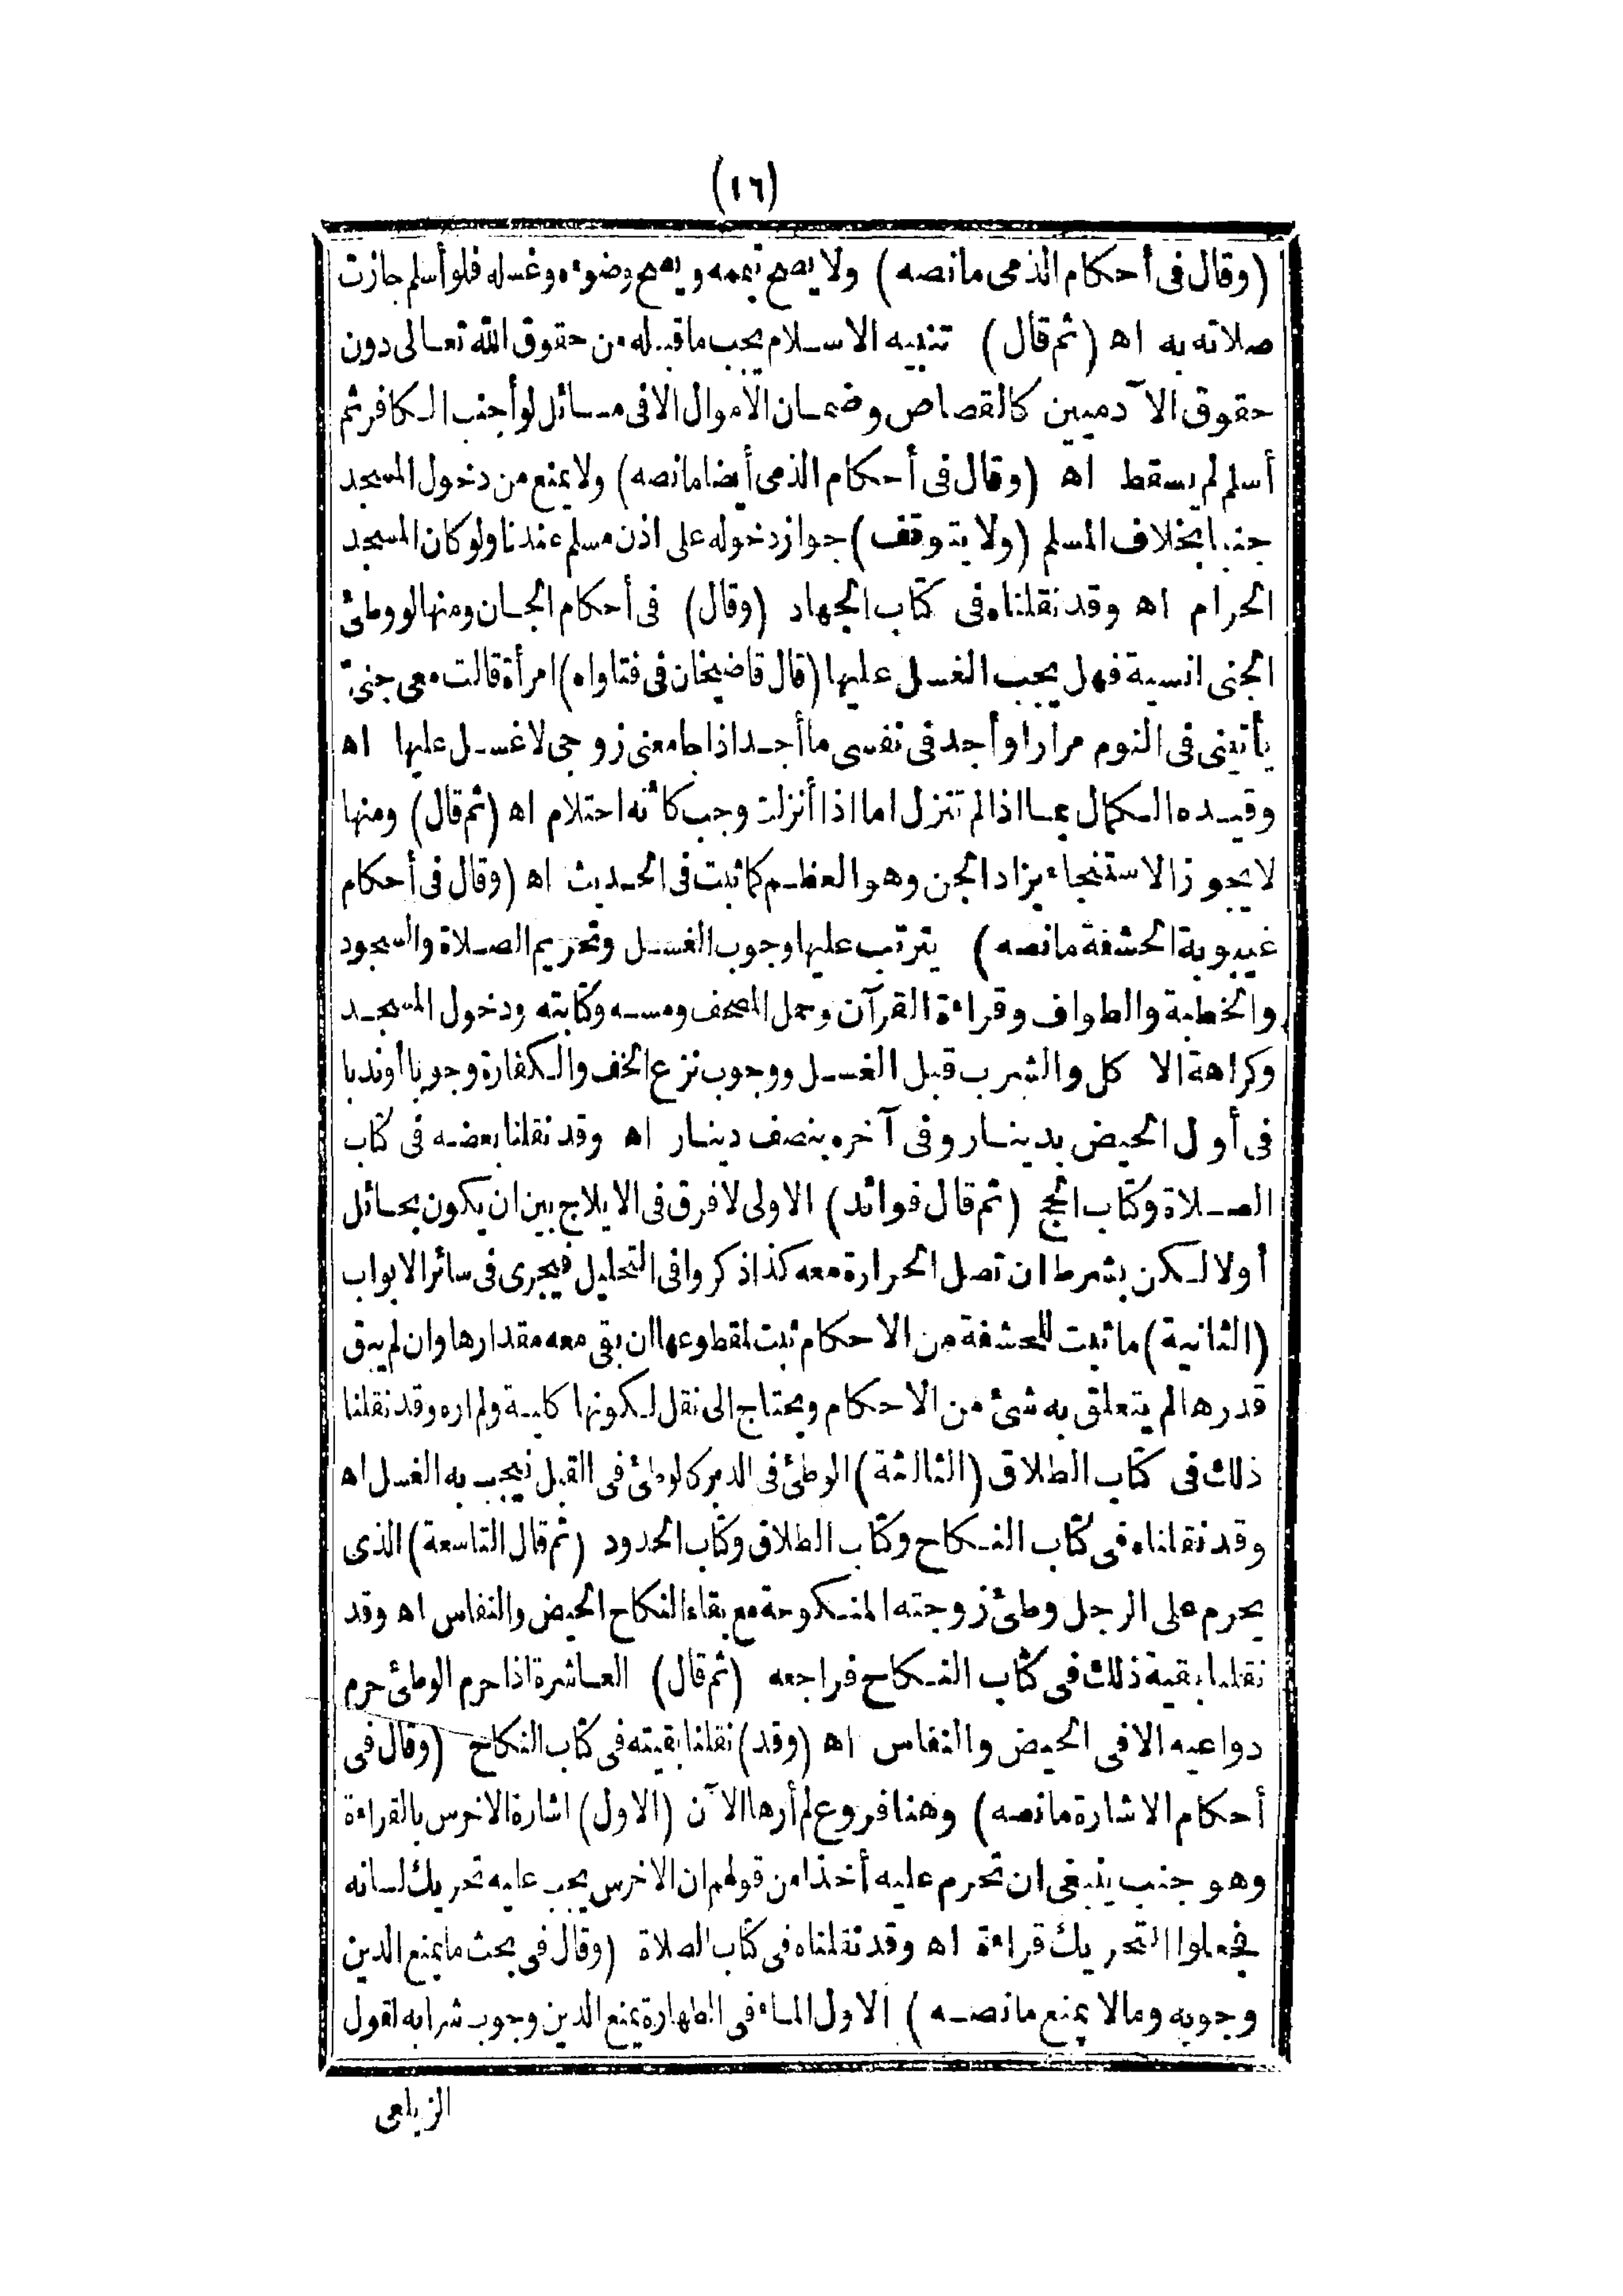 (١٦)
(وقال فى أحكام الذمى مانصه) ولا يصح تيممه ويصح وضوءه وغسله فلو أسلم جازت
صلاته به اه (ثم قال) تنبيه الاسلام يجب ما قبله من حقوق الله تعالى دون
حقوق الآدميين كالقصاص وضمان الأموال الا فى مسائل لو أجنب الكافر ثم
أسلم لم يسقط اه (وقال فى أحكام الذمى أيضا مانصه) ولا يمنع من دخول المسجد
جنبا بخلاف المسلم (ولا يتوقف) جواز دخوله على اذن مسلم عندنا ولو كان المسجد
الحرام اه وقد نقلناه فى كتاب الجهاد (وقال) فى أحكام الجان ومنها لو وطئ
الجنى انسية فهل يجب الغسل عليها (قال قاضيخان فى فتاواه) امرأة قالت معى جنى
يأتينى فى النوم مرارا وأجد فى نفسى ما أجد اذا جامعنى زوجى لا غسل عليها اه
وقيده الكمال بما اذا لم تنزل اما اذا أنزلت وجب كأنه احتلام اه (ثم قال) ومنها
لا يجوز الاستنجاء بزاد الجن وهو العظم كما ثبت فى الحديث اه (وقال فى أحكام
غيبوبة الحشفة مانصه) يترتب عليها وجوب الغسل وتحريم الصلاة والسجود
والخطبة والطواف وقراءة القرآن وحمل المصحف ومسه وكتابته ودخول المسجد
وكراهة الاكل والشرب قبل الغسل ووجوب نزع الخف والكفارة وجوبا أو ندبا
فى أول الحيض بدينار وفى آخره بنصف دينار اه وقد نقلنا بعضه فى كتاب
الصلاة وكتاب الحج (ثم قال فوائد) الاولى لا فرق فى الايلاج بين ان يكون بحائل
أولا لكن بشرط ان تصل الحرارة معه كذا ذكروا فى التحليل فيجرى فى سائر الابواب
(الثانية) ما ثبت للحشفة من الاحكام ثبت لمقطوعها ان بقى معه مقدارها وان لم يبق
قدرها لم يتعلق به شئ من الاحكام ويحتاج الى نقل لكونها كلية ولم اره وقد نقلنا
ذلك فى كتاب الطلاق (الثالثة) الوطئ فى الدبر كالوطئ فى القبل فيجب به الغسل اه
وقد نقلناه فى كتاب النكاح وكتاب الطلاق وكتاب الحدود (ثم قال التاسعة) الذى
يحرم على الرجل وطئ زوجته المنكوحة مع بقاء النكاح الحيض والنفاس اه وقد
نقلنا بقية ذلك فى كتاب النكاح فراجعه (ثم قال) العاشرة اذا حرم الوطئ حرم
دواعيه الا فى الحيض والنفاس اه (وقد) نقلنا بقيته فى كتاب النكاح (وقال فى
أحكام الاشارة مانصه) وهنا فروع لم أرها الآن (الاول) اشارة الاخرس بالقراءة
وهو جنب ينبغى ان تحرم عليه أخذا من قولهم ان الاخرس يجب عليه تحريك لسانه
فجعلوا التحريك قراءة اه وقد نقلناه فى كتاب الصلاة (وقال فى بحث ما يمنع الدين
وجوبه وما لا يمنع مانصه) الاول الماء فى الطهارة يمنع الدين وجوب شرابه لقول
الزيلعى